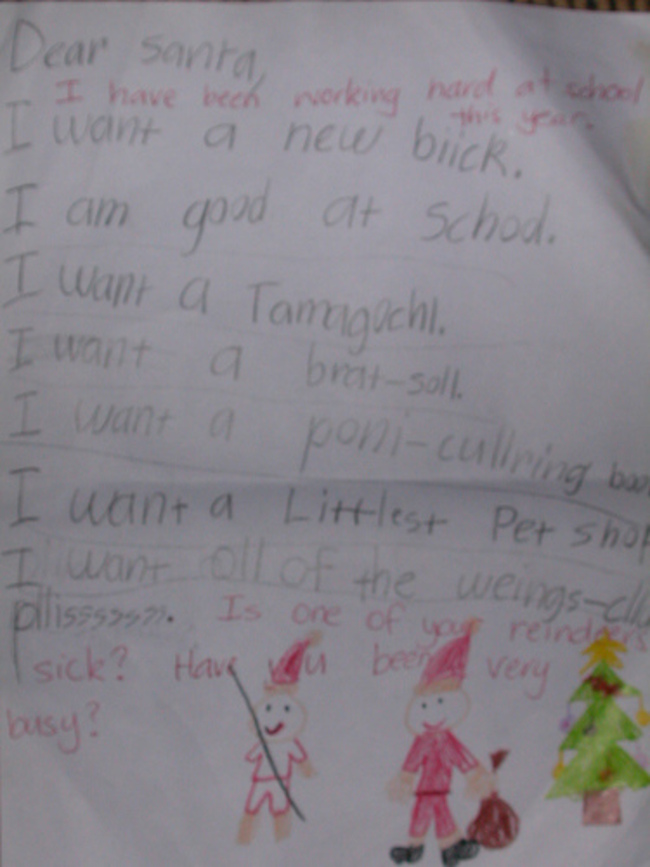 Dear santa,
I have been working hard at school
this year.
I want a new biick.
I am good at school.
I want a Tamagochi.
I want a brat-soll.
I want a poni-cullring boo
I want a Littlest Pet shop
I want oll of the weings-clu
pllisssssss. Is one of your reindeers
sick? Have you been very
busy?